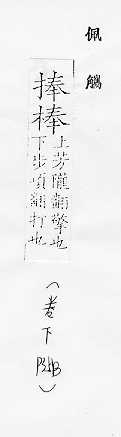 佩觿
捧棒
上芳隴翻擎也
下步項翻打也
(卷下
P34B)